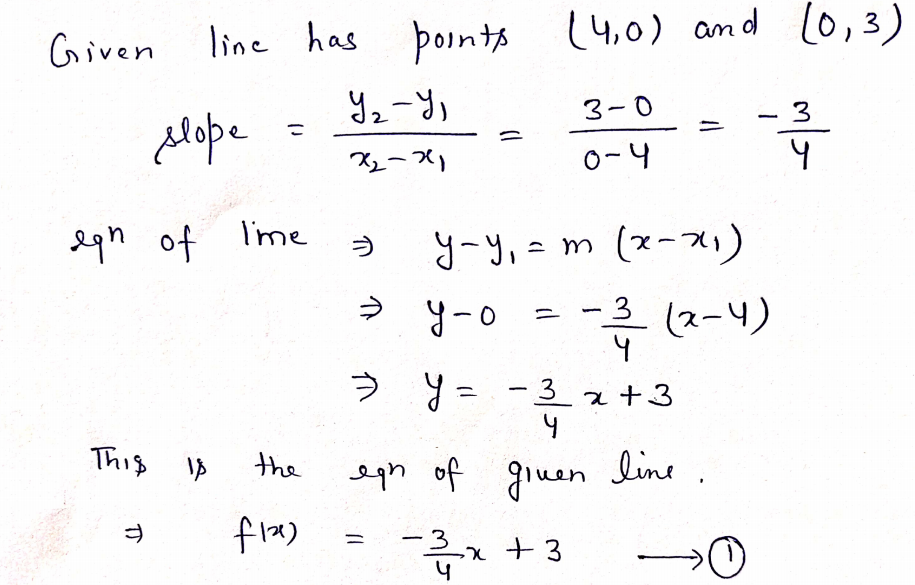 Given line has points (4,0) and (0,3)
slope = \frac{y₂-y₁}{x₂-x₁} = \frac{3-0}{0-4} = -\frac{3}{4}
eqn of line ⇒ y-y₁ = m (x-x₁)
⇒ y-0 = -\frac{3}{4} (x-4)
⇒ y = -\frac{3}{4} x + 3
This is the eqn of given line.
⇒ f(x) = -\frac{3}{4} x + 3 ⟶ ①